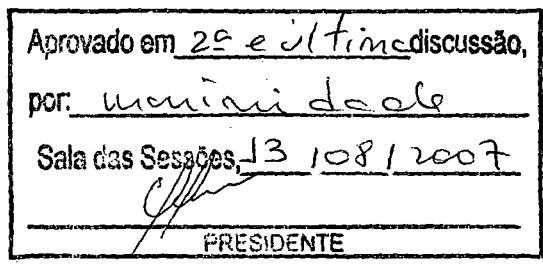 Aprovado em 2ª e última discussão,
por: unanimidade
Sala das Sessões, 13 / 08 / 2007
PRESIDENTE